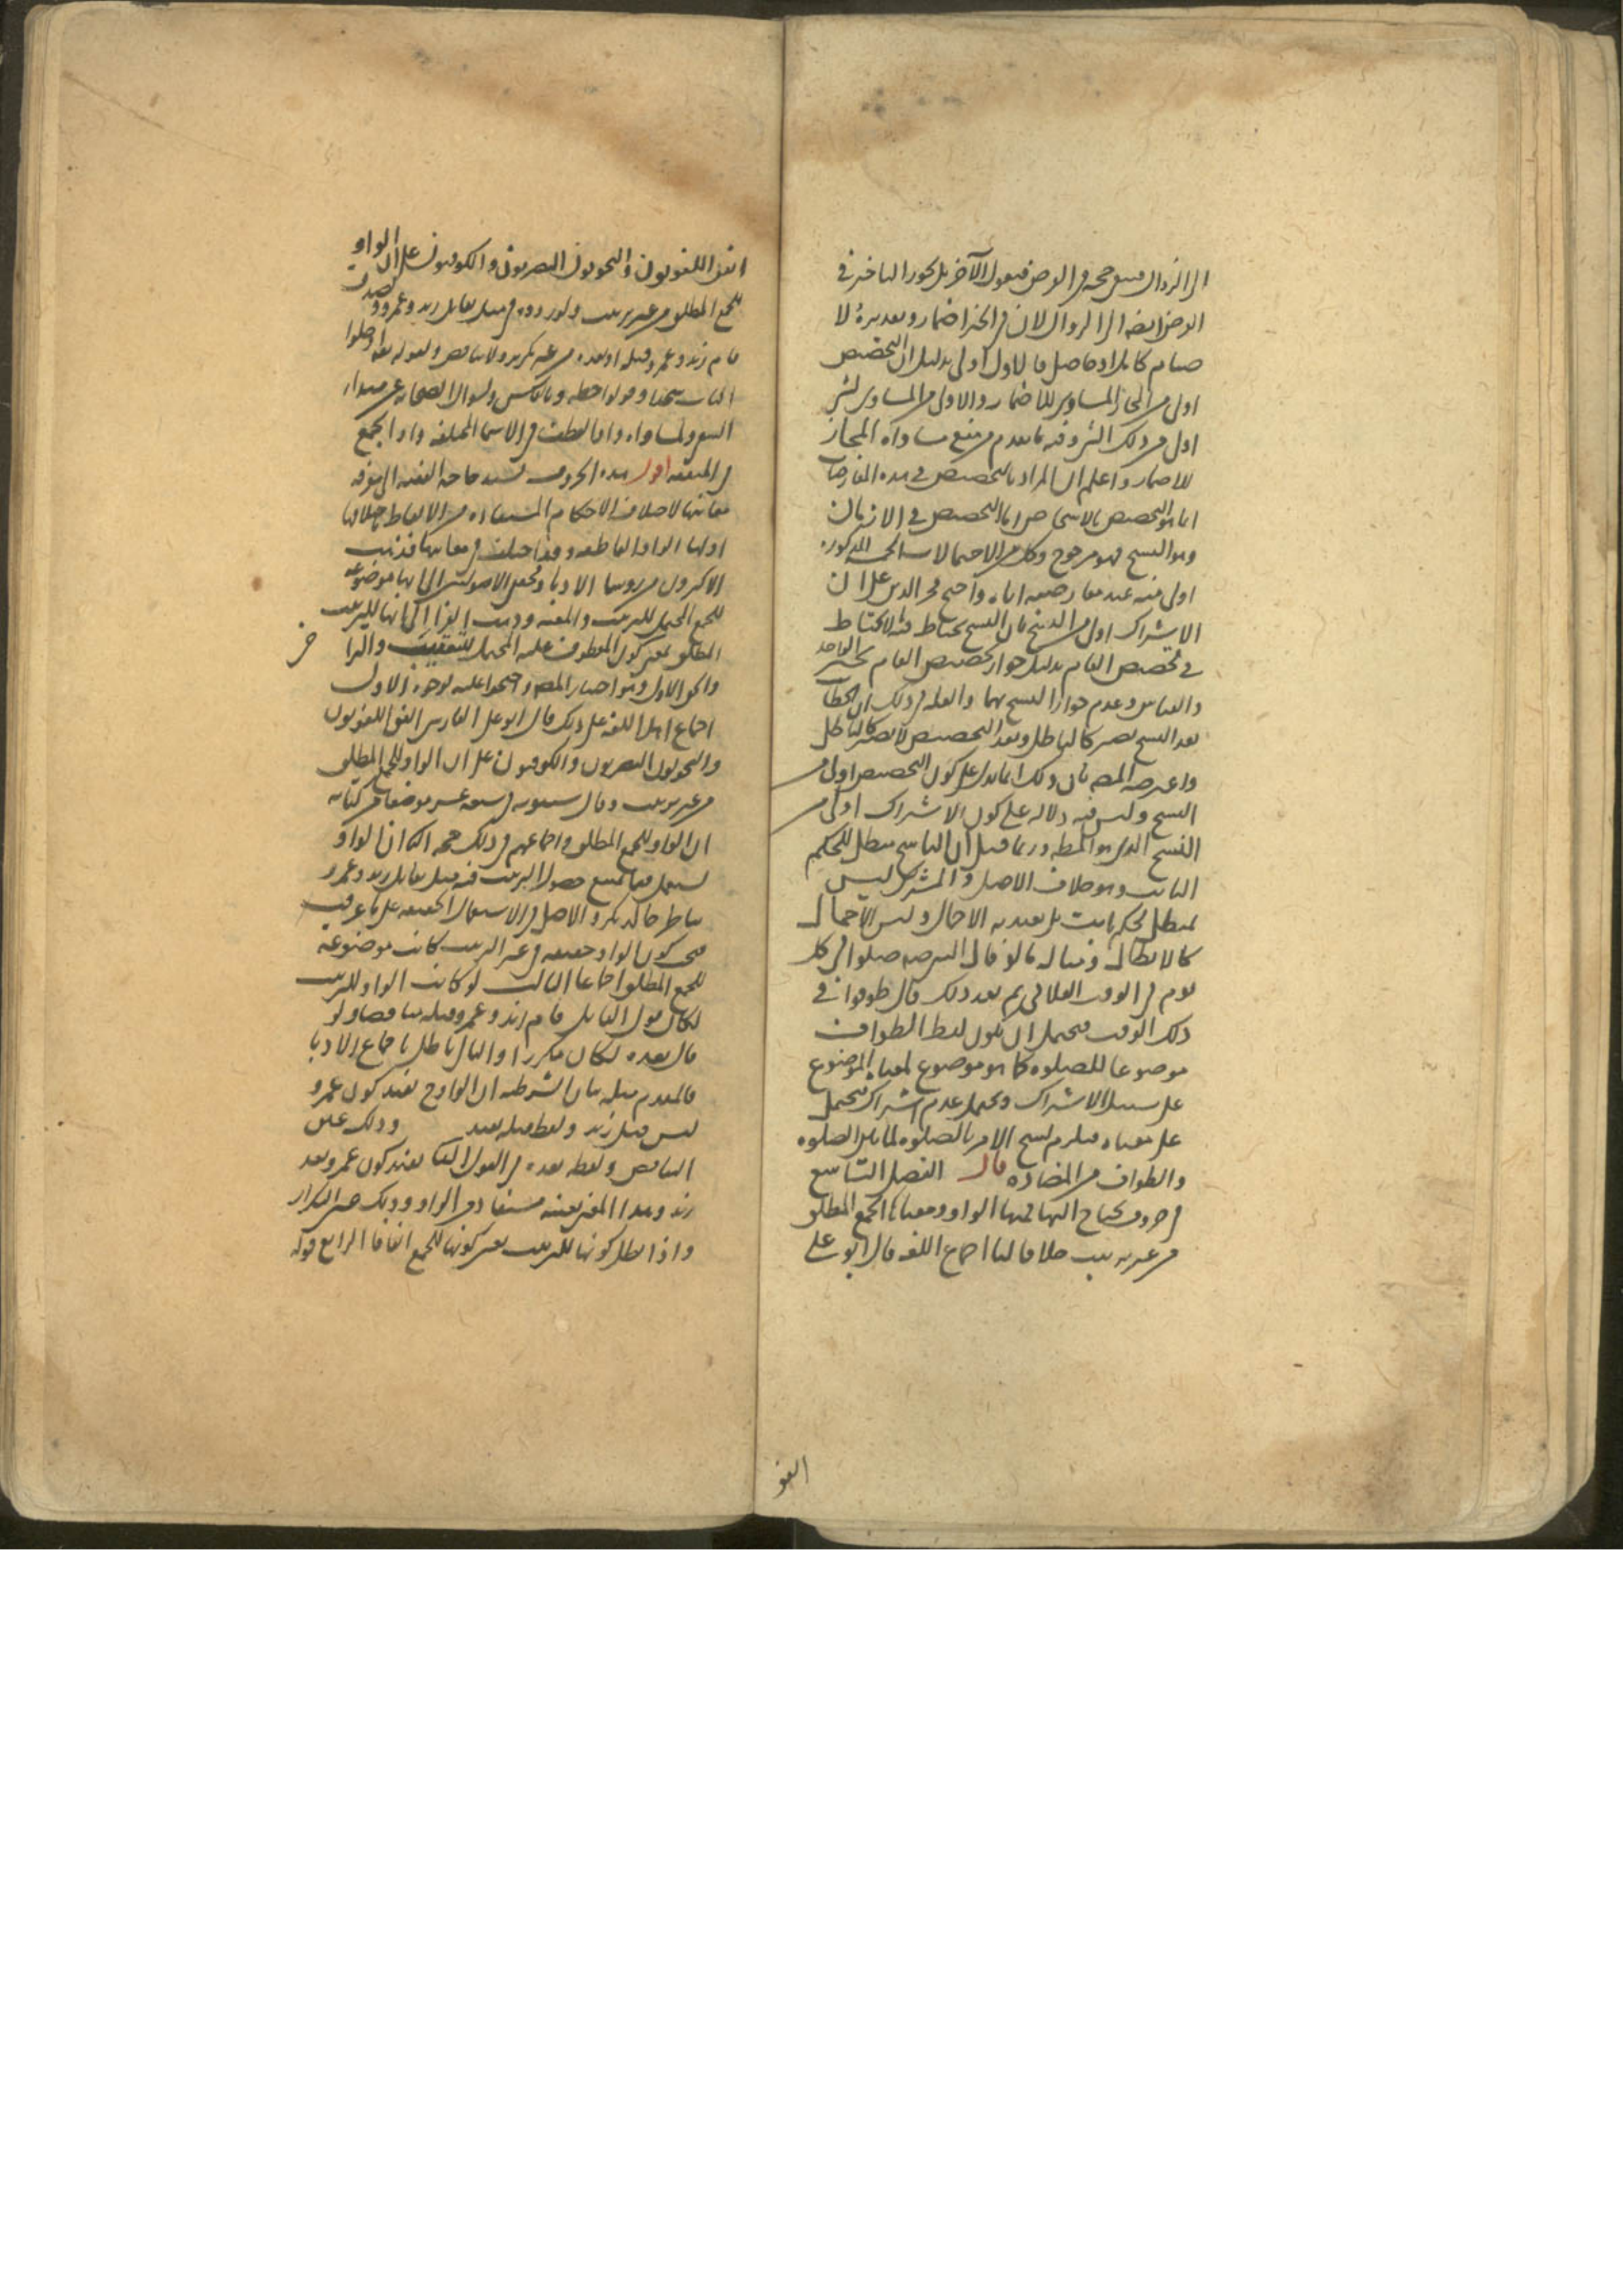 الى الزوال فيبقى حجة في الفرض فيقول الآخر بل يجوز التأخير في
الفرض ايضا الى الزوال لان في الخبر اضمار وتقديره لا
صيام كاملا او فاضل فالاول اولى بدليل ان التخصيص
اولى من المجاز المساوي للاضمار والاولى من المساوي لشيء
اولى من ذلك الشيء وفيه ما تقدم من منع مساواة المجاز
للاضمار واعلم ان المراد بالتخصيص في هذه المعارضات
انما هو التخصيص بالاشخاص اما التخصيص في الازمان
وهو النسخ فهو مرجوح وكل من الاحتمالات الخمسة المذكورة
اولى منه عند معارضته اياه واحتج فخر الدين على ان
الاشتراك اولى من النسخ بان النسخ يحتاط فيه ما لا يحتاط
في تخصيص العام بدليل جواز تخصيص العام بخبر الواحد
والقياس وعدم جواز النسخ بهما والعلة في ذلك ان الخطاب
بعد النسخ يصير كالباطل وبعد التخصيص لا يصير كالباطل
واعترضه المصـ بان ذلك انما يدل على كون التخصيص اولى من
النسخ وليس فيه دلالة على كون الاشتراك اولى من
النسخ الذي هو المطـ وربما قيل ان الناسخ مبطل للحكم
الثابت وهو خلاف الاصل والمشترك ليس
بمبطل لحكم ثابت بل يفيد به الاجمال وليس الاجمال
كالابطال ومثاله ما لو قال الشرع صلوا في كل
يوم في الوقت الفلاني ثم بعد ذلك قال طوفوا في
ذلك الوقت فيحتمل ان يكون لفظ الطواف
موضوعا للصلوه كما هو موضوع لمعناه الموضوع
على سبيل الاشتراك ويحتمل عدم اشتراك فيحمل
على معناه فيلزم نسخ الامر بالصلوه لما بين الصلوه
والطواف من المضاده قال الفصل التاسع
في حروف يحتاج اليها فمنها الواو ومعناها الجمع المطلق
من غير ترتيب خلافا لنا اجماع اللغه قال ابو على
اتفق
اتفق اللغويون والنحويون البصريون والكوفيون على ان الواو
للجمع المطلق من غير ترتيب ولوروده في مثل تقاتل زيد وعمرو ولصدق
قام زيد وعمرو قبله او بعده من غير تكرير ولا تناقض ولقوله تعالى ادخلوا
الباب سجدا وقولوا حطة وبالعكس ولسؤال الصحابه عن مبدأ
السعي ولمساواة واو العطف في الاسماء المختلفه واو الجمع
في المتفقه اقول هذه الحروف تشتد حاجه الفقيه الى معرفه
معانيها لاختلاف الاحكام المستفاده من الالفاظ باختلافها
اولها الواو العاطفه وقد اختلف في معانيها فذهب
الاكثرون من رؤساء الادباء ومحققي الاصوليين الى انها موضوعه
للجمع المحتمل للترتيب والمعيه وذهب الفراء الى انها للترتيب
المطلق بمعنى كون المعطوف عليه المحتمل للتعقيب والتراخي
والحق الاول وهو اختيار المصـ واحتجوا عليه بوجوه الاول
اجماع اهل اللغه على ذلك قال ابو على الفارسي اتفق اللغويون
والنحويون البصريون والكوفيون على ان الواو للجمع المطلق
من غير ترتيب وقال سيبويه في سبعه عشر موضعا من كتابه
ان الواو للجمع المطلق واجماعهم في ذلك حجه الثاني ان الواو
تستعمل فيما يمتنع حصول الترتيب فيه مثل تقاتل زيد وعمرو
تناظر خالد بكر والاصل في الاستعمال الحقيقه على ما عرفت
فمتى كون الواو حقيقه في غير الترتيب كانت موضوعه
للجمع المطلق اجماعا الثالث لو كانت الواو للترتيب
لكان قول القائل قام زيد وعمرو قبله تناقضا ولو
قال بعده لكان مكررا والتالي باطل باجماع الادبا
فالمقدم مثله بيان الشرطيه ان الواو ح تفيد كون عمرو
ليس قبل زيد ولفظ قبله يفيد وذلك عين
التناقض ولفظه بعده في القول الثاني تفيد كون عمرو بعد
زيد وهذا المعنى بعينه مستفاد من الواو وذلك عين التكرار
واذا بطل كونها للترتيب تعين كونها للجمع اتفاقا الرابع قوله